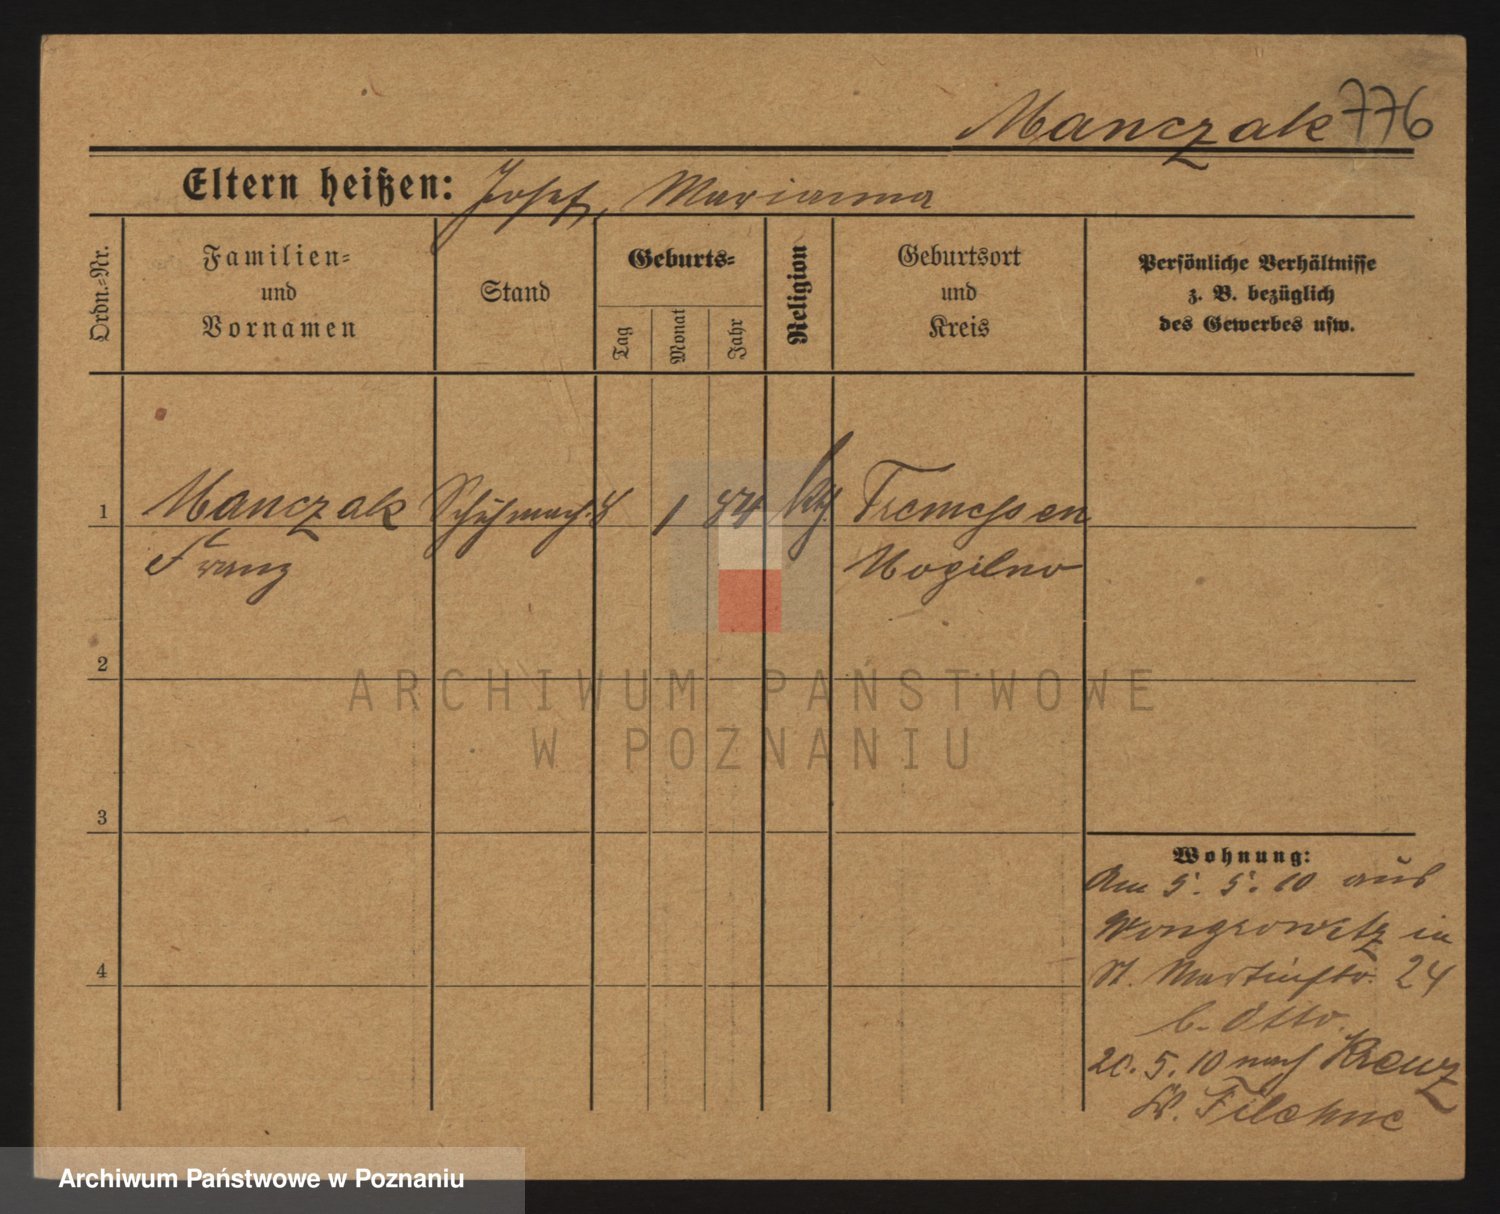 Manczak 776
Eltern heißen: Josef, Marianna
Ordn.-Nr.
Familien-
und
Vornamen
Stand
Geburts-
Tag
Monat
Jahr
Religion
Geburtsort
und
Kreis
Persönliche Verhältnisse
z. B. bezüglich
des Gewerbes usw.
1 Manczak Schuhmach. 4 1 84 kth. Tremessen
Franz Mogilno
2
3
4
Wohnung:
Am 5. 5. 10 aus
Wongrowitz in
St. Martinstr. 24
b. Otto.
20. 5. 10 nach Kreuz
Kr. Filehne
ARCHIWUM PAŃSTWOWE
W POZNANIU
Archiwum Państwowe w Poznaniu